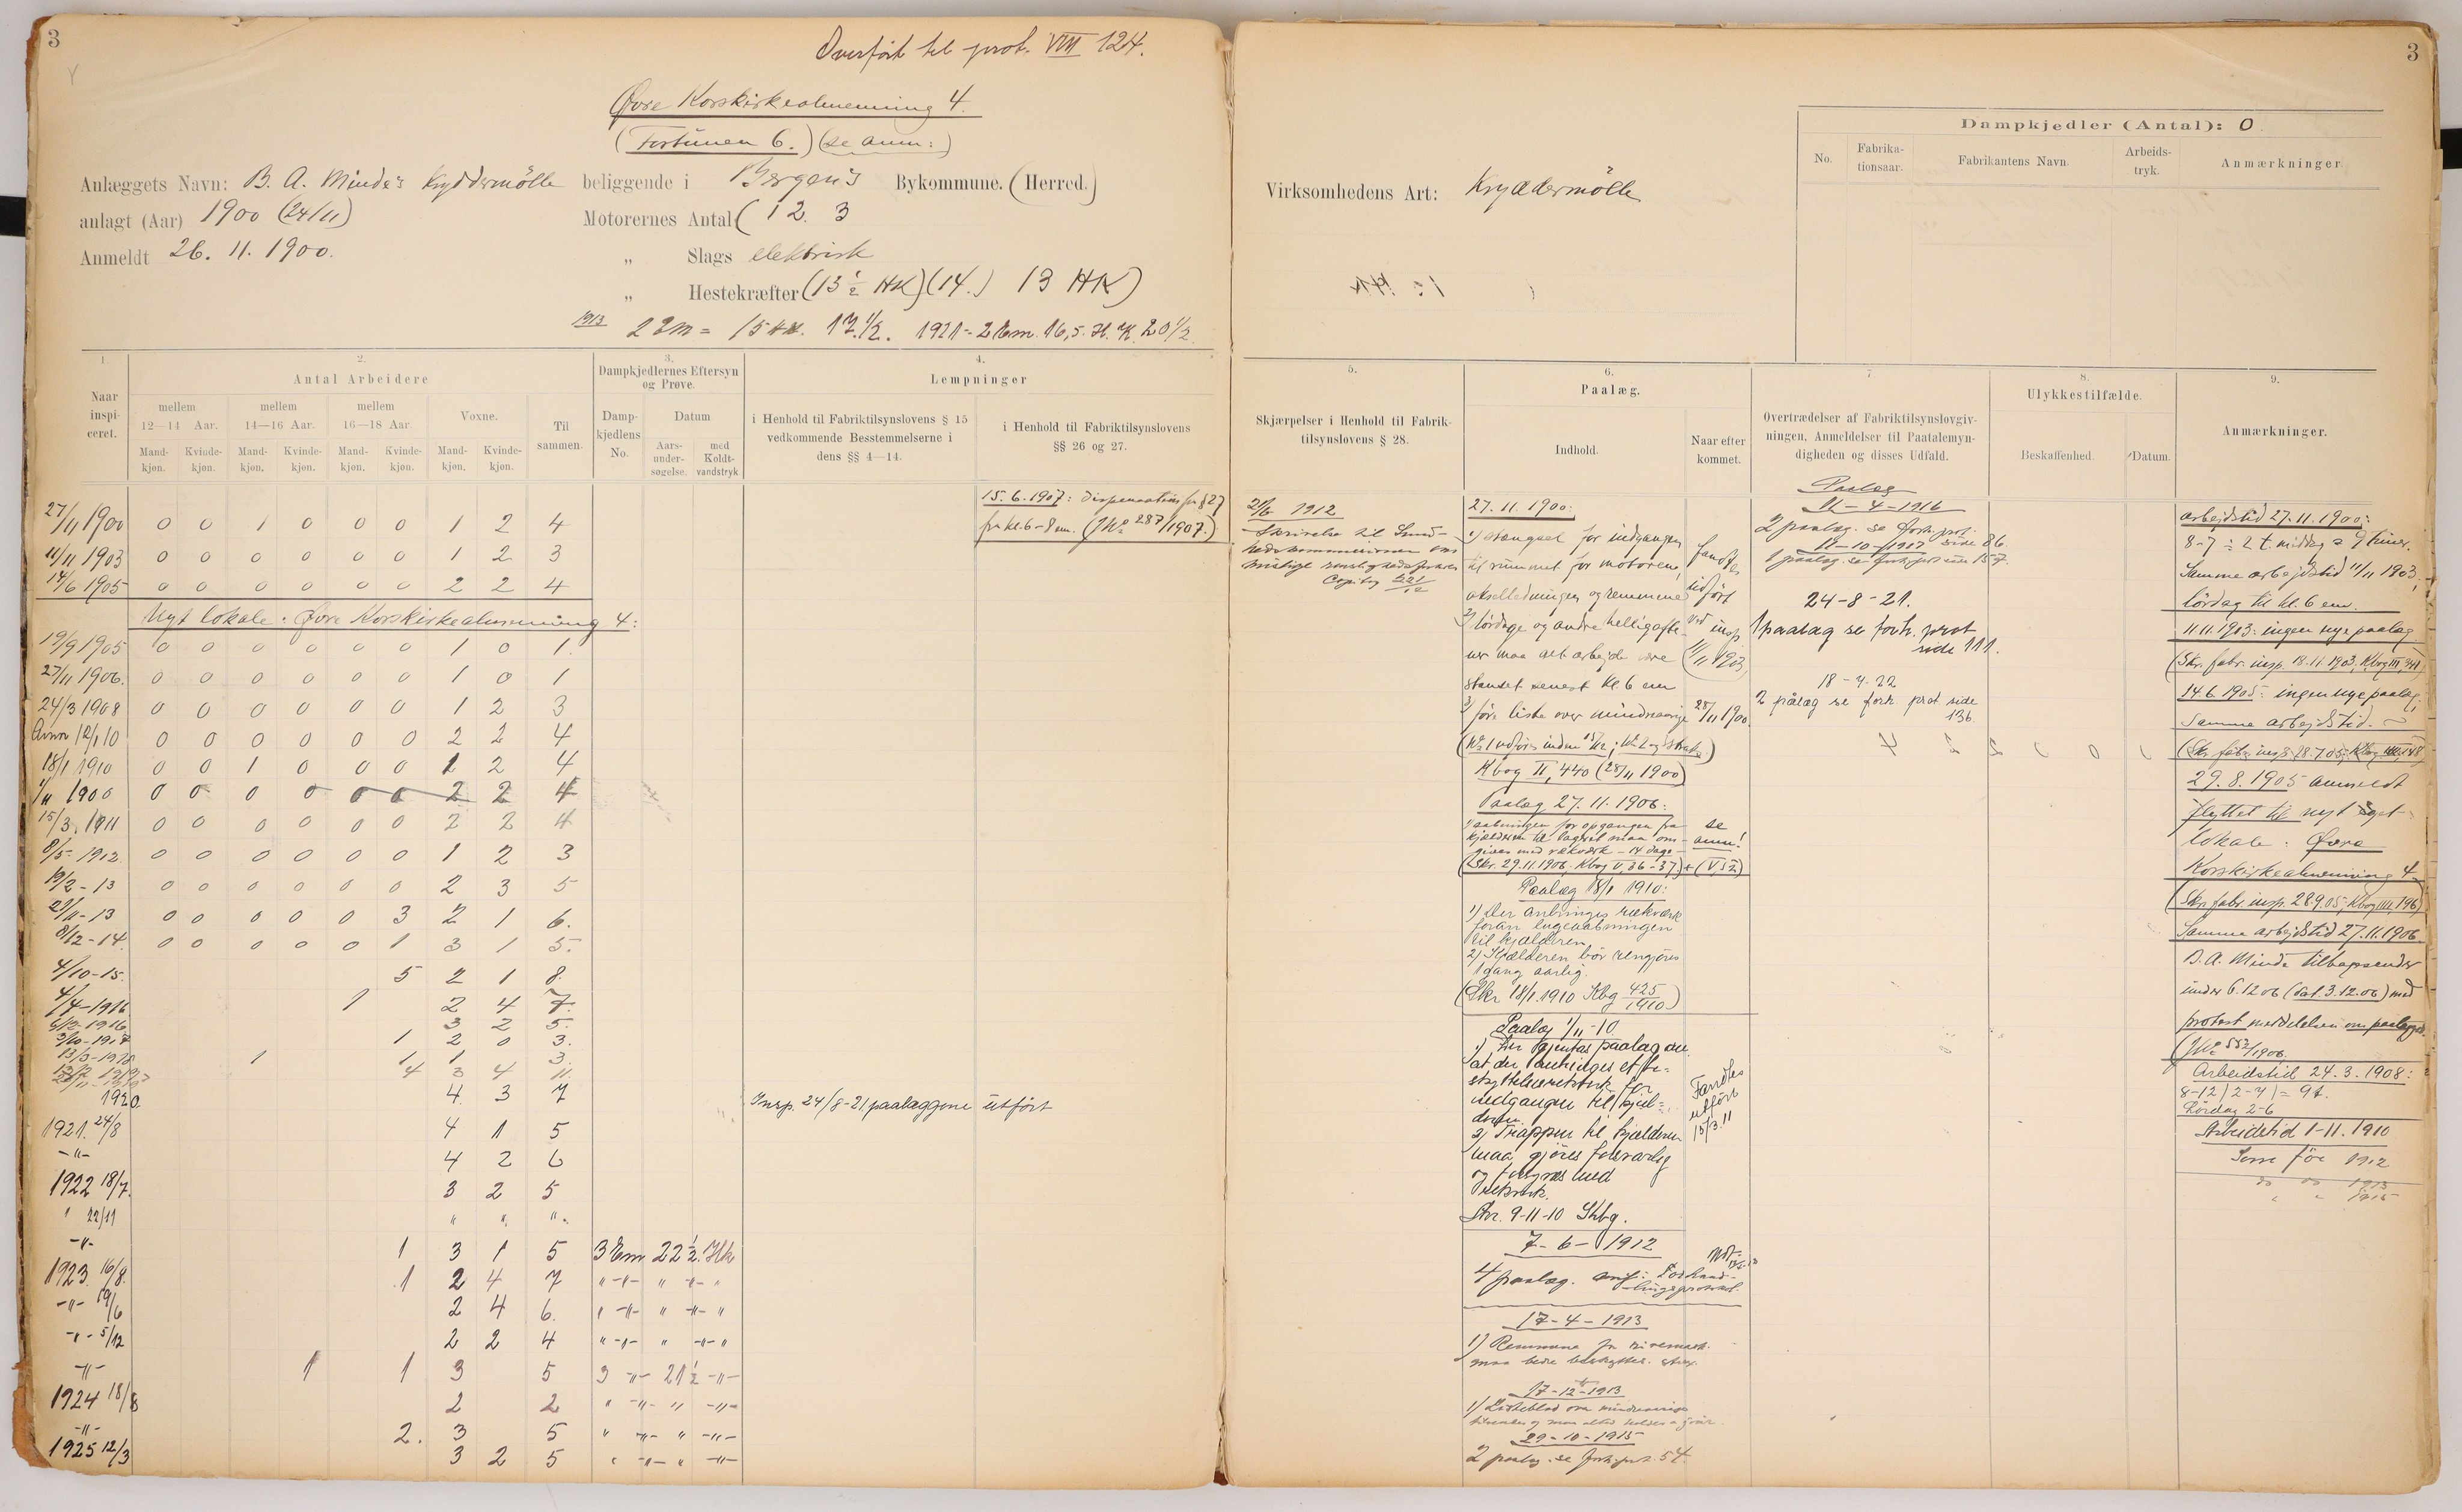 3
Overført til prot. VIII 124.
Øvre Korskirkealmenning 4.
(Fortunen 6.) (se anm:)
Anlæggets Navn: B. A. Minde's Kryddermölle beliggende i Bergens Bykommune. (Herred.)
anlagt (Aar) 1900 (24/11) Motorernes Antal ( 1 2. 3
Anmeldt 26. 11. 1900. „ Slags elektrisk
„ Hestekræfter (13 1/2 HK) (14.) 13 HK)
1913 2 Em = 15 HK. 17 1/2. 1921 - 2 Em. 16,5. H. K. 20 1/2
1. 2. 3. 4.
Naar inspiceret.
Antal Arbeidere
Dampkjedlernes Eftersyn og Prøve.
Lempninger
mellem 12—14 Aar. mellem 14—16 Aar. mellem 16—18 Aar. Voxne. Til sammen.
Mandkjøn. Kvindekjøn. Mandkjøn. Kvindekjøn. Mandkjøn. Kvindekjøn. Mandkjøn. Kvindekjøn.
Dampkjedlens No. Datum Aarsundersøgelse. med Koldtvandstryk.
i Henhold til Fabriktilsynslovens § 15 vedkommende Besstemmelserne i dens §§ 4—14.
i Henhold til Fabriktilsynslovens §§ 26 og 27.
15. 6. 1907: dispensation fra § 27
fra kl. 6-8 em. (JNo 287/1907.)
27/11 1900 0 0 1 0 0 0 1 2 4
11/11 1903 0 0 0 0 0 0 1 2 3
14/6 1905 0 0 0 0 0 0 2 2 4
Nyt lokale: Øvre Korskirkealmenning 4:
19/9 1905 0 0 0 0 0 0 1 0 1.
27/11 1906. 0 0 0 0 0 0 1 0 1
24/3 1908 0 0 0 0 0 0 1 2 3
12/1 10 0 0 0 0 0 0 2 2 4
18/1 1910 0 0 1 0 0 0 1 2 4
1/11 1900 0 0 0 0 0 0 2 2 4
15/3. 1911 0 0 0 0 0 0 2 2 4
8/5 1912. 0 0 0 0 0 0 1 2 3
19/2-13 0 0 0 0 0 0 2 3 5
29/11-13 0 0 0 0 0 3 2 1 6.
8/12-14. 0 0 0 0 0 1 3 1 5.
4/10-15. 5 2 1 8.
4/4-1916 1 2 4 7.
6/12-1916 3 2 5.
3/10-1917 1 2 0 3.
13/3-1918 1 1 1 3.
4 3 4 11.
1920. 4 3 7 Insp. 24/8-21 paalæggene utført
1921. 24/8 4 1 5
-"- 4 2 6
1922 18/7. 3 2 5
" 22/11 " " ".
-"- 1 3 1 5 3 Em 22 1/2 Hk
1923. 16/8. 1 2 4 7 " -"- " -"- "
-"- 19/6 2 4 6. " -"- " -"- "
-"- 5/12 2 2 4 " -"- " -"- "
-"- 1 1 3 5 3 -"- 21 1/2 -"-
1924 18/8 2 2 " -"- " -"-
-"- 2. 3 5 " -"- " -"-
1925 12/3 3 2 5 " -"- " -"-
3
Virksomhedens Art: Kryddermölle
Dampkjedler (Antal): 0
No. Fabrikationsaar. Fabrikantens Navn. Arbeidstryk. Anmærkninger
5. 6. 7. 8. 9.
Skjærpelser i Henhold til Fabriktilsynslovens § 28.
Paalæg.
Indhold. Naar efterkommet.
Overtrædelser af Fabriktilsynslovgivningen, Anmeldelser til Paatalemyndigheden og disses Udfald.
Ulykkestilfælde.
Beskaffenhed. Datum.
Anmærkninger.
21/6 1912
Skrivelse til Sundhedskommissionen om
27. 11. 1900:
1) stængsel for indgangen
til rummet for motoren,
akselledningen og remmene
2) lördage og andre helligaftener maa alt arbejde være
standset senest kl. 6 em
3) före liste over mindreaarige 28/11 1900
fandtes udført ved insp. 11/11 1903
Kbog II, 440 (28/11 1900)
Paalæg 27. 11. 1906:
1) aabningen for opgangen fra
kjælderen til lageret maa omgives med rekværk - 14 dage -
se anm!
(Skr. 29.11.1906. Kbog V, 36-37) + (V, 52)
Paalæg 18/1 1910:
1) Der anbringes rækværk
foran lugeaabningen
til kjælderen
2) Kjælderen bör rengjöres
1 gang aarlig.
(Skr 18/1 1910 Kbg 425/1910)
Paalæg 1/11-10
1) Der gjentas paalæg om
at der anbringes et beskyttelsesrekverk for
nedgangen til kjælderen
2) Trappen til kjælderen
maa gjöres forsvarlig
og forsynes med
rekverk.
Skr. 9-11-10 Skbg.
Fandtes utfört 15/3. 11
7-6-1912
4 paalæg. anf: Forhandlingsprotokol.
17-4-1913
1) Remmene for rivemask.
maa bedre beskyttes.
17-12-1913
29-10-1915
2 paalæg. se forh.prot. 54.
Paalæg
11-4-1916
2 paalæg. se forh.prot. side 86
11-10-1917
1 paalæg. se forh.prot side 157.
24-8-21.
1 paalæg se forh. prot
side 111.
18-4-22
2 pålæg se forh. prot. side
136.
arbejdstid 27. 11. 1900:
8-7 ÷ 2 t. middag = 9 timer.
Samme arbejdstid 11/11 1903,
lördag til kl. 6 em.
11 11. 1903: ingen nye paalæg
(Skr. fabr. insp. 18.11.1903, Kbog III, 341)
14. 6. 1905: ingen nye paalæg,
samme arbejdstid.
29. 8. 1905 anmeldt
flyttet til nyt
lokale: Øvre
Korskirkealmenning 4.
(Skr. fabr. insp. 28.9.05, Kbog IIII, 196)
Samme arbejdstid 27.11.1906.
B. A. Minde tilbagesender
under 6.12 06 (dat. 3.12.06) med
protest meddelelsen om paalægget
(JNo 552/1906.
Arbeidstid 24. 3. 1908:
8-12 / 2-7 = 9 t.
Lördag 2-6
Arbeidstid 1-11. 1910
Som för 1912
do do 1913
" " 1915